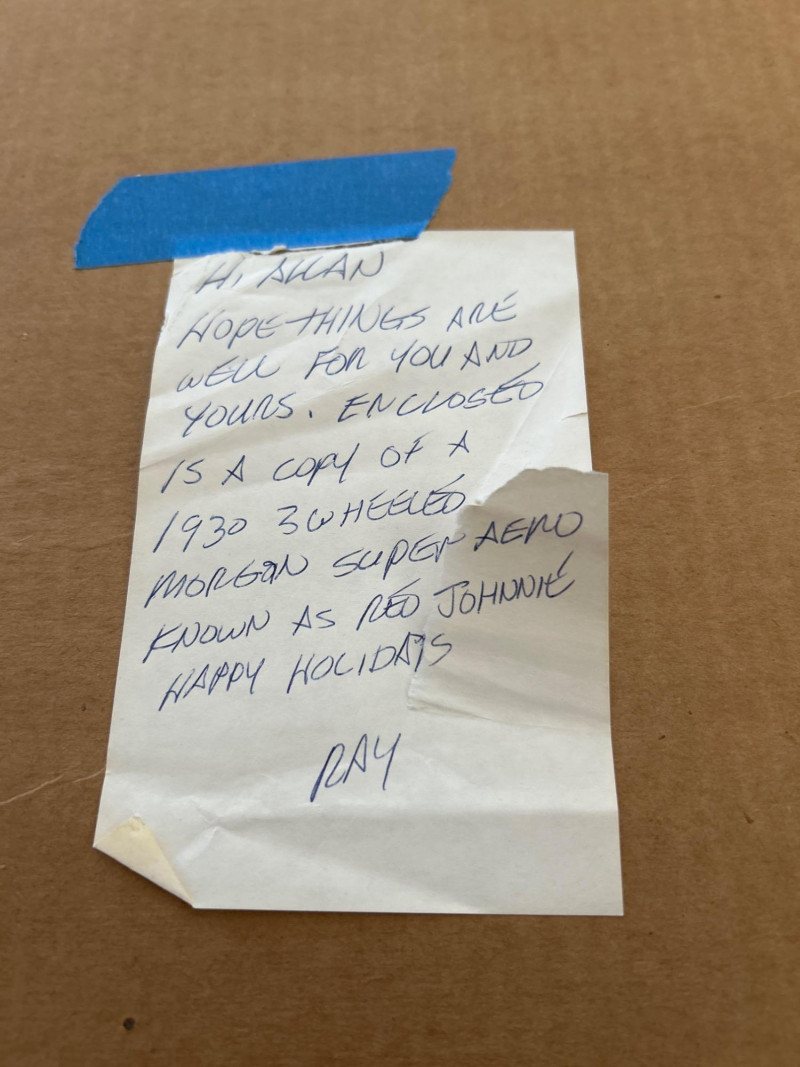 HI ALLAN
HOPE THINGS ARE
WELL FOR YOU AND
YOURS. ENCLOSED
IS A COPY OF A
1930 3 WHEELED
MORGAN SUPER AERO
KNOWN AS RED JOHNNIE
HAPPY HOLIDAYS
RAY